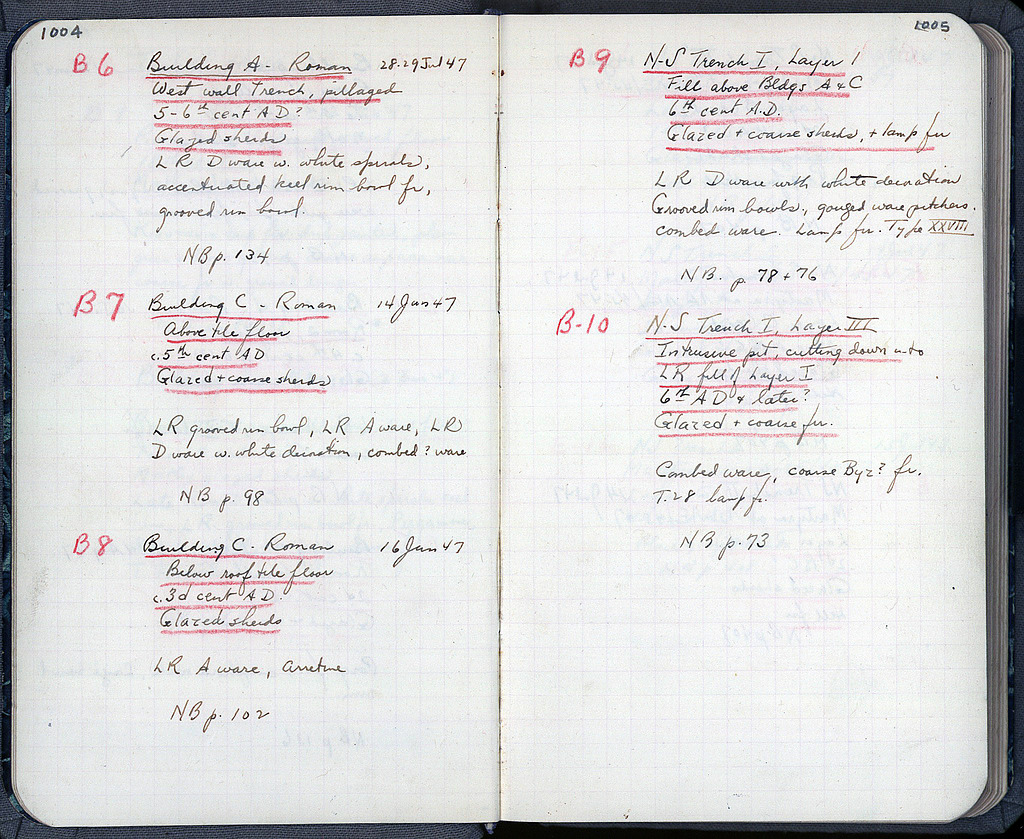 1004
B 6 Building A - Roman 28-29 Jul 47
West wall Trench, pillaged
5-6th cent AD?
Glazed sherds
LR D ware w. white spirals,
accentuated keel rim bowl fr,
grooved rim bowl.
NB p. 134
B 7 Building C - Roman 14 Jun 47
Above tile floor
c. 5th cent AD
Glazed + coarse sherds
LR grooved rim bowl, LR A ware, LR
D ware w. white decoration, combed? ware
NB p. 98
B 8 Building C. Roman 16 Jun 47
Below roof tile floor
c. 3d cent AD.
Glazed sherds
LR A ware, arretine
NB p. 102
1005
B 9 N-S Trench I, Layer I
Fill above Bldgs A & C
6th cent A.D.
Glazed + coarse sherds, + lamp fr
LR D ware with white decoration
Grooved rim bowls, gouged ware pitchers.
combed ware. Lamp fr. Type XXVIII
NB. p. 78 + 76
B-10 N-S Trench I, Layer III
Intrusive pit, cutting down into
LR fill of Layer I
6th AD & later?
Glazed + coarse fr.
Combed ware, coarse Byz? fr.
T. 28 lamp fr.
NB p. 73